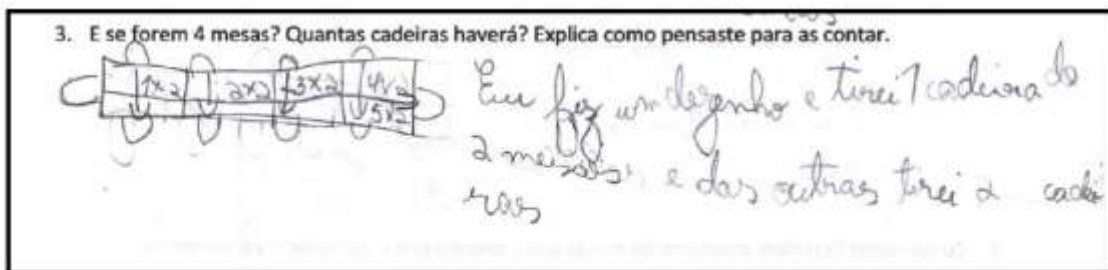 3. E se forem 4 mesas? Quantas cadeiras haverá? Explica como pensaste para as contar.
1x2 2x2 3x2 4x2
5x2
Eu fiz um dezenho e tirei 1 cadeira de
2 mesas e das outras tirei 2 cadei
ras